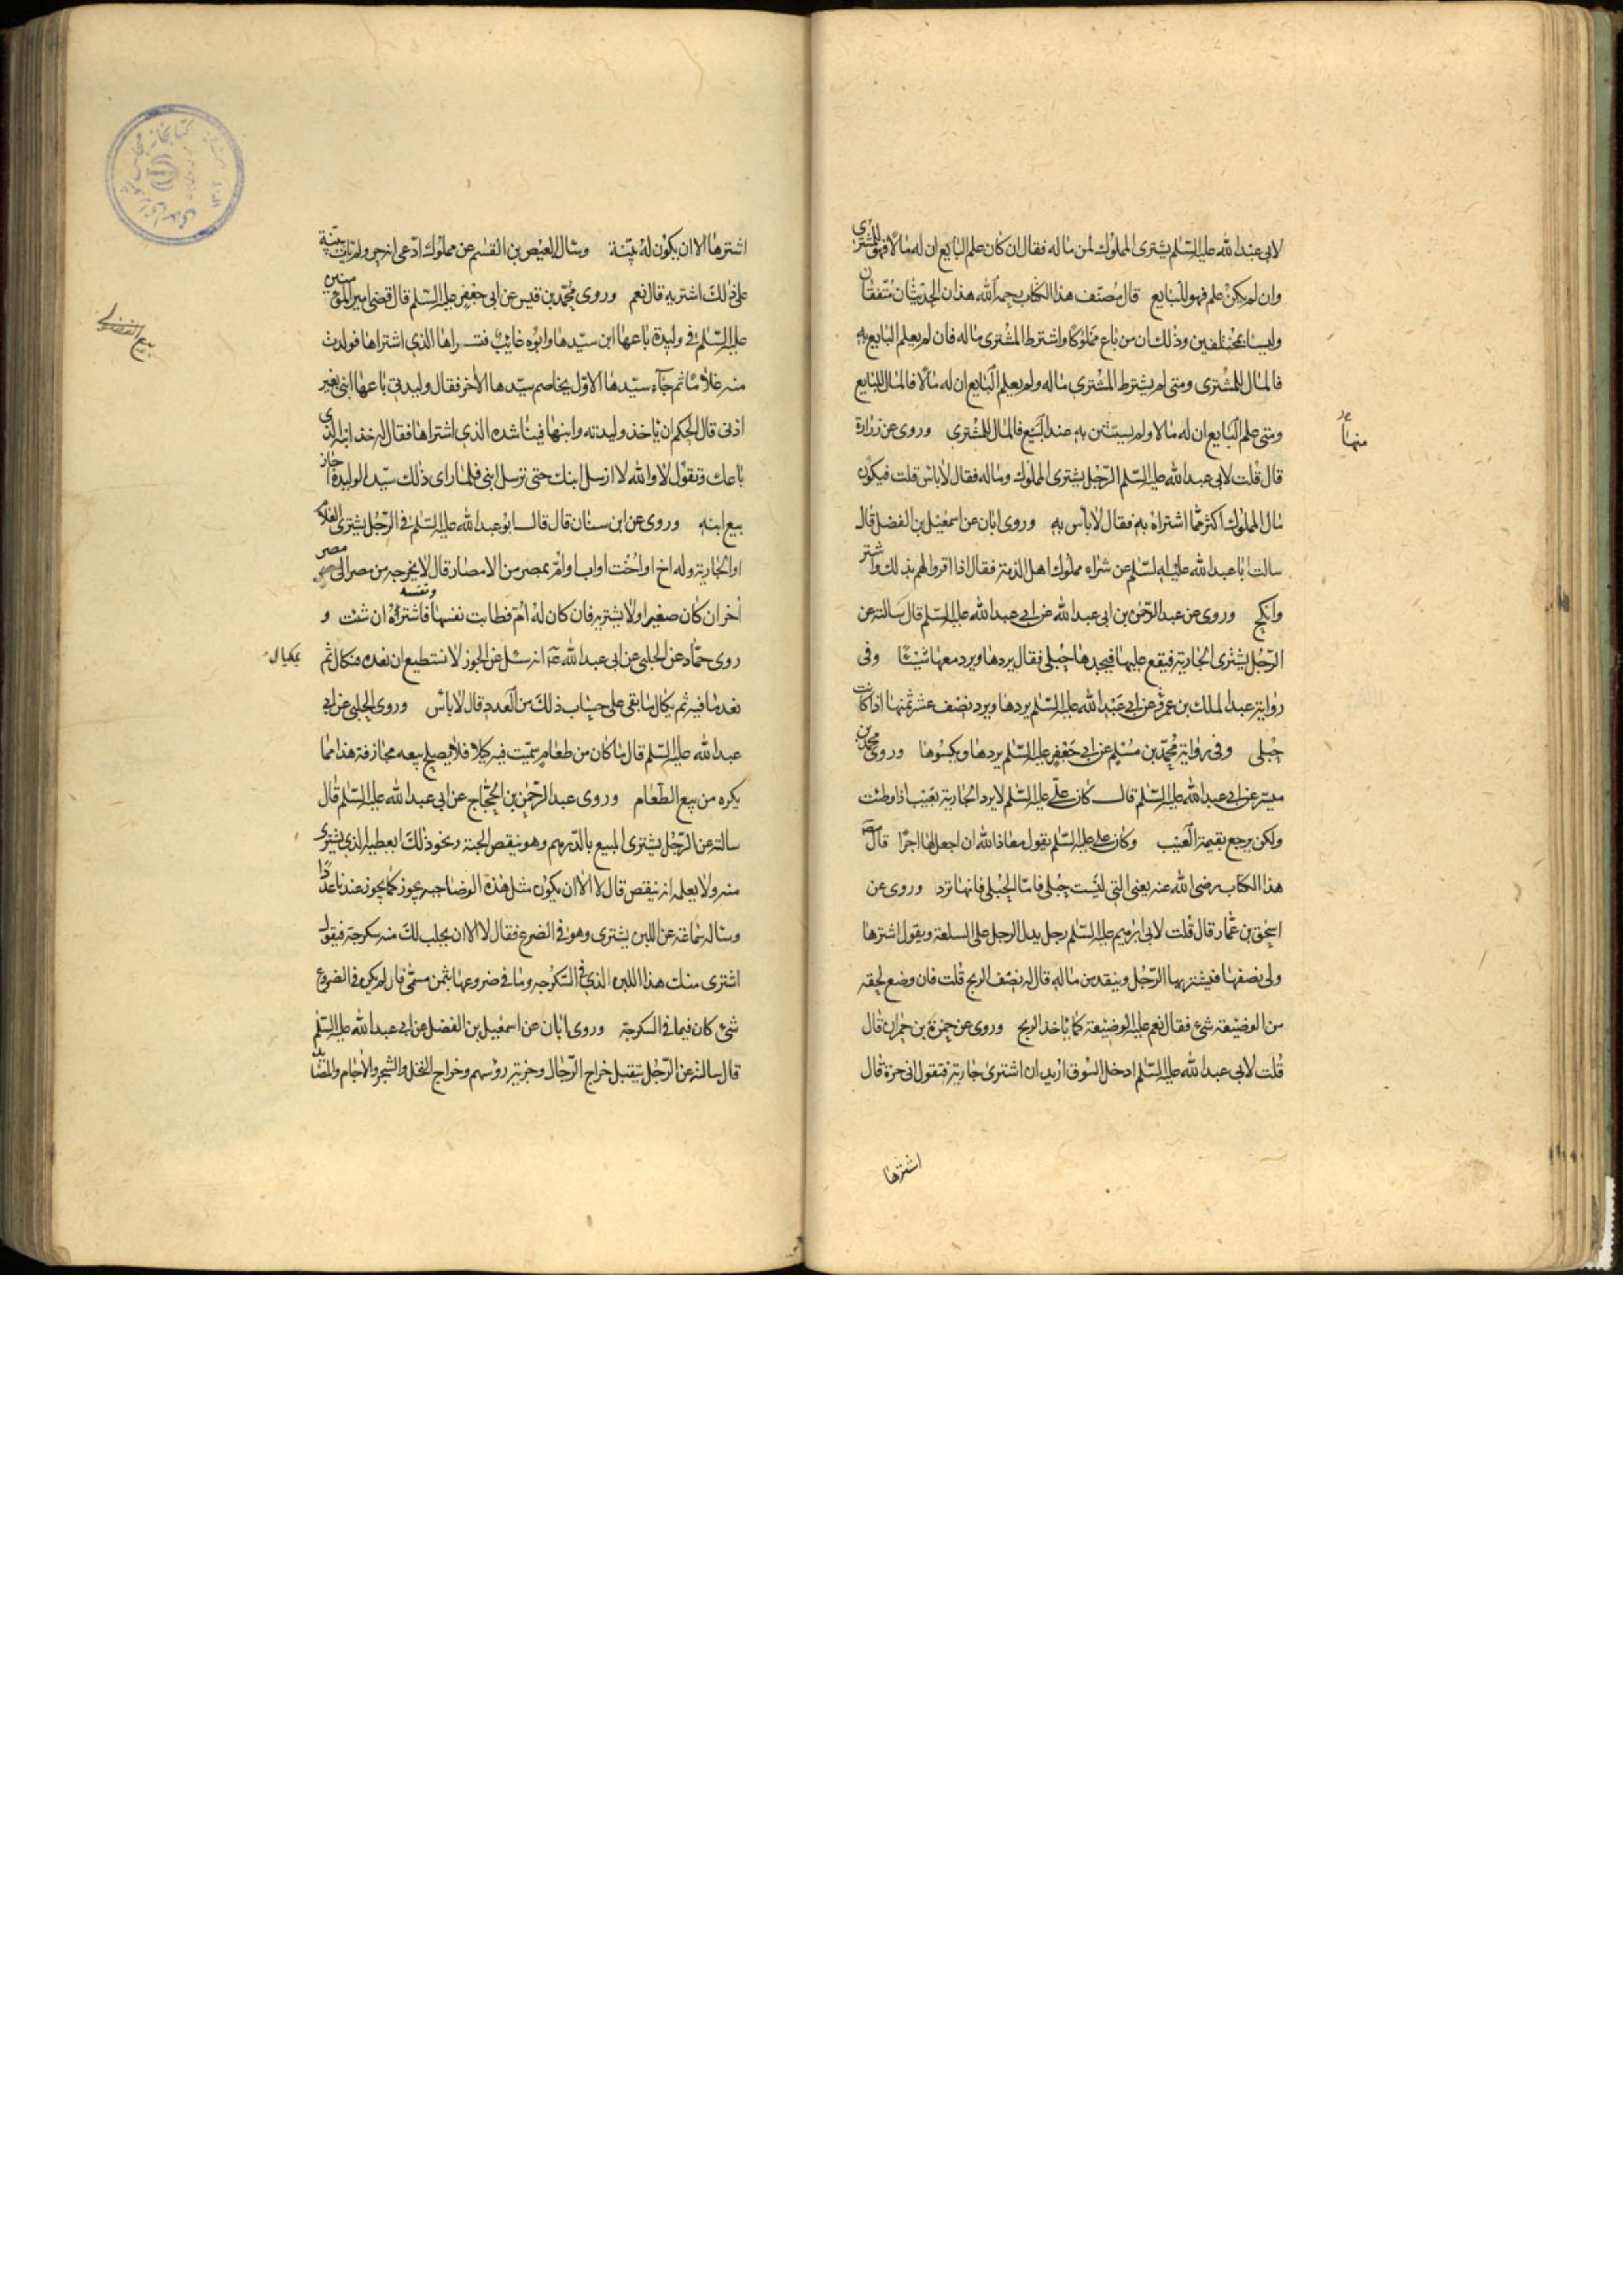 لابی عبدالله علیه السّلم یشتری المملوك لمن ماله فقال ان كان علم البایع ان له مالا فهو للمشتری
وان لم یكن علم فهو للبایع قال مُصنّف هذا الكتاب رحمه الله هذان الحدیثان متّفقان
ولیسا بمختلفین وذلك ان من باع مملوكا واشترط المشتری ماله فان لم یعلم البایع به
فالمال للمشتری ومتی لم یشترط المشتری ماله ولم یعلم البایع ان له مالا فالمال للبایع
ومتی علم البایع ان له مالا ولم یستثن به عند البیع فالمال للمشتری وروی عن زرارة
قال قلت لابی عبدالله علیه السّلم الرّجل یشتری المملوك وماله فقال لا باس قلت فیكون
مال المملوك اكثر ممّا اشتراه به فقال لا باس به وروی ابان عن اسمعیل بن الفضل قال
سالت ابا عبدالله علیه السّلم عن شراء مملوك اهل الذمة فقال اذا اقروا لهم بذلك واشتر
وانكح وروی عن عبدالرّحمن بن ابی عبدالله عن ابی عبدالله علیه السّلم قال سالته عن
الرّجل یشتری الجاریة فیقع علیها فیجدها حبلی فقال یردها ویرد معها شیئا وفی
روایة عبدالملك بن عمرو عن ابی عبدالله علیه السّلم یردها ویرد نصف عشر ثمنها اذا كانت
حبلی وفی روایة محمّد بن مسلم عن ابی جعفر علیه السّلم یردها ویكسوها وروی محمد بن
میسر عن ابی عبدالله علیه السّلم قال كان علی علیه السّلم لا یرد الجاریة بعیب اذا وطئت
ولكن یرجع بقیمة العیب وكان علی علیه السّلم یقول معاذ الله ان اجعل لها اجرا قال مصنف
هذا الكتاب رضی الله عنه یعنی التی لیست حبلی فامّا الحبلی فانها ترد وروی عن
اسحق بن عمّار قال قلت لابی ابرهیم علیه السّلم رجل یدل الرجل علی السلعة ویقول اشترها
ولی نصفها فیشتریها الرّجل وینقد من ماله قال له نصف الربح قلت فان وضع لحقه
من الوضیعة شیء فقال نعم علیه الوضیعة كما یاخذ الربح وروی عن حمزة بن حمران قال
قلت لابی عبدالله علیه السّلم ادخل السّوق ارید ان اشتری جاریة فتقول انی حرة قال
اشترها
منها
اشترها الا ان یكون له بیّنة وسال العیص بن القسم عن مملوك ادّعی انه حر ولم یات ببیّنة
علی ذلك اشتریه قال نعم وروی محمّد بن قیس عن ابی جعفر علیه السّلم قال قضی امیر المؤمنین
علیه السّلم فی ولیدة باعها ابن سیّدها وابوه غائب فتسراها الذی اشتراها فولدت
منه غلاما ثم جاء سیّدها الاوّل یخاصم سیّدها الاخر فقال ولیدتی باعها ابنی بغیر
اذنی قال الحكم ان یاخذ ولیدته وابنها فیناشده الذی اشتراها فقال له خذ ابنه الذی
باعك وتقول لا والله لا ارسل ابنك حتی ترسل ابنی فلمّا رای ذلك سیّد الولیدة اجاز
بیع ابنه وروی عن ابن سنان قال قال ابو عبدالله علیه السّلم فی الرّجل یشتری الغلام
او الجاریة وله اخ او اخت او اب او امّ بمصر من الامصار قال لا یخرجه من مصر الی مصر
اخر ان كان صغیرا ولا یشتریه فان كان له امّ فطابت نفسها ونفسه فاشتراه ان شئت و
روی حمّاد عن الحلبی عن ابی عبدالله ع انه سئل عن الجوز لا نستطیع ان نعده فنكال ثم
یعد ما فیه ثم یكال ما بقی علی حساب ذلك من العدد قال لا باس وروی الحلبی عن ابی
عبدالله علیه السّلم قال ما كان من طعام سمّیت فیه كیلا فلا یصلح بیعه مجازفة هذا ممّا
یكره من بیع الطّعام وروی عبدالرّحمن بن الحجّاج عن ابی عبدالله علیه السّلم قال
سالته عن الرّجل یشتری المبیع بالدّرهم وهو ینقص الحبة ونحو ذلك ایعطیه الذی یشتری
منه ولا یعلمه انه ینقص قال لا الا ان یكون مثل هذه الوضاحیه یجوز كما یجوز عندنا عددا
وساله سماعة عن اللبن یشتری وهو فی الضرع فقال لا الا ان یحلب لك منه سكرجة فیقول
اشتری منك هذا اللبن الذی فی السّكرجه وما فی ضروعها بثمن مسمّی فان لم یكن فی الضروع
شیء كان فیما فی السكرجة وروی ابان عن اسمعیل بن الفضل عن ابی عبدالله علیه السّلم
قال سالته عن الرّجل یتقبل خراج الرّجال وجزیة رؤسهم وخراج النخل والشجر والاجام والمصاید
بمكیال